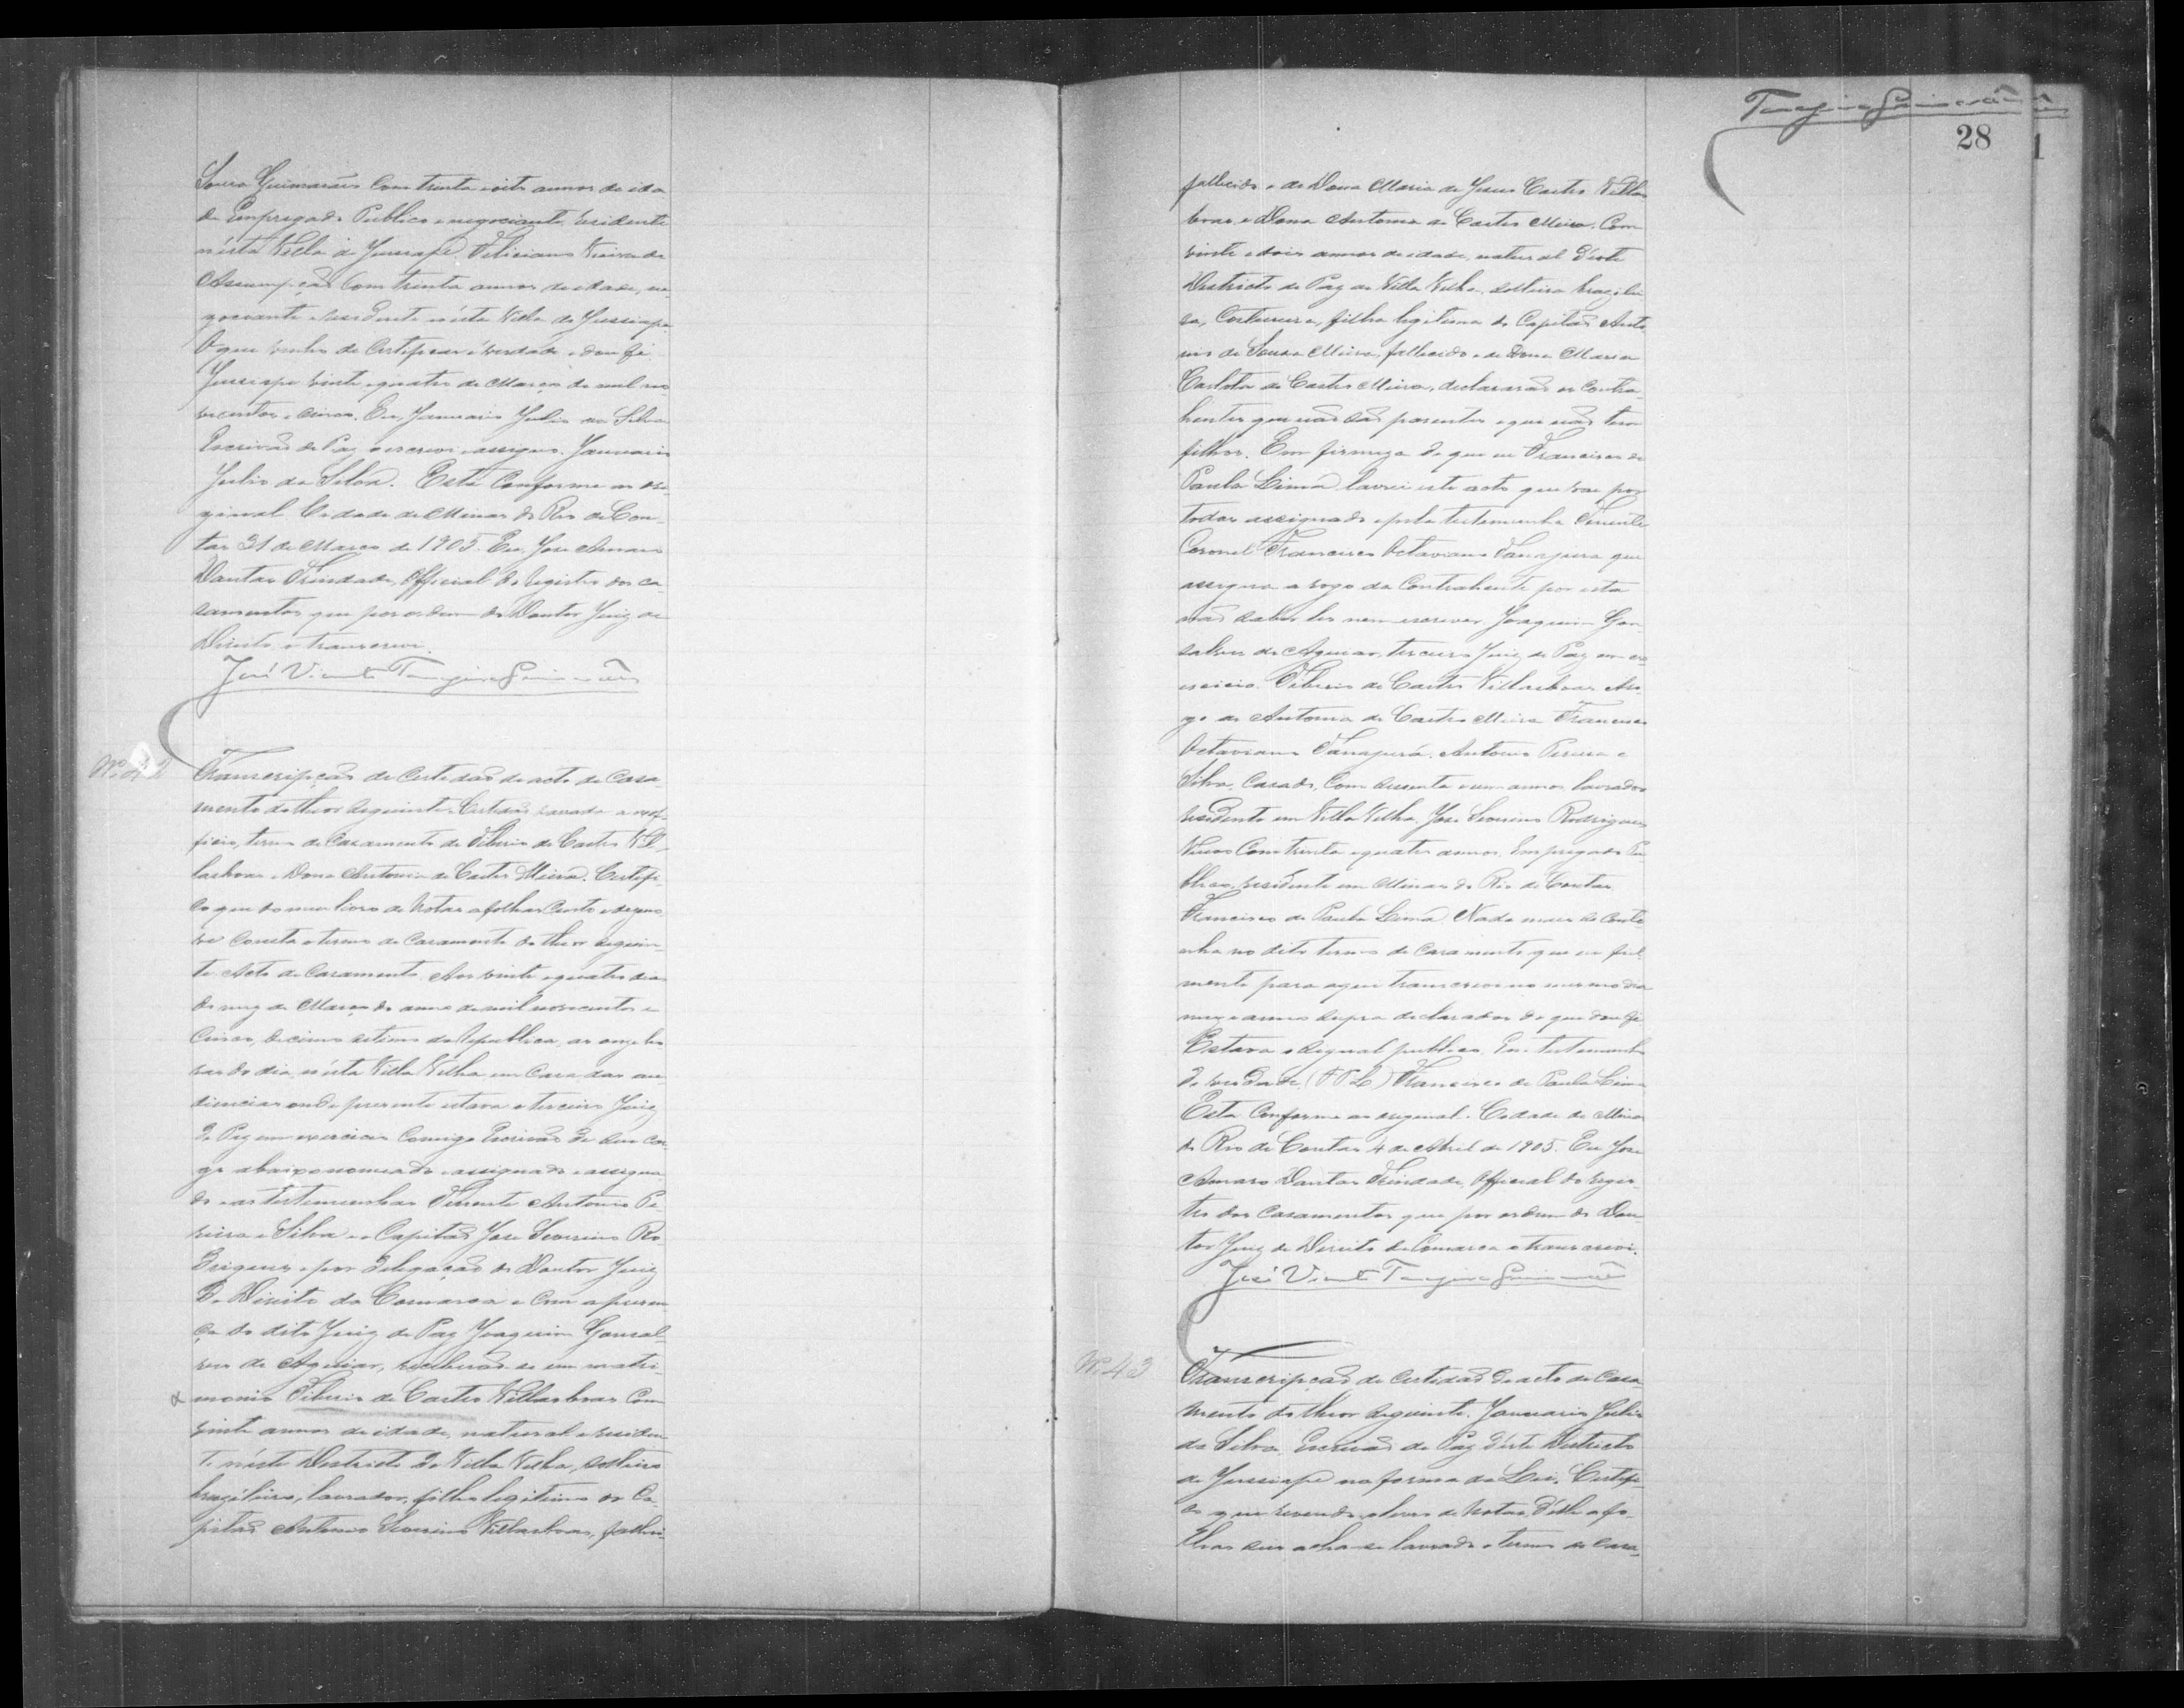 Souza Guimarães com trenta e oito annos de ida
de Empregado Publico e negociante, residente
n'ésta Villa de Jussiape, Feliciano Vieira da
Assumpção com trenta annos de idade, ne-
gociante e residente n'ésta Villa de Jussiape
O que venho de Certificar é verdade e dou fé.
Jussiape vinte e quatro de Março de mil no
vecentos e cinco. Eu, Januario Julio da Silva
Escrivão de Paz o escrevi e assigno. Januario
Julio da Silva. Está Conforme ao ori-
ginal Cidade de Minas do Rio de Con-
tas 31 de Março de 1905. Eu, Jose Amaro
Dantas Trindade, Official do Registro dos ca-
samentos, que por ordem do Doutor Juiz de
Direito, o transcrevi.
José Vicente Tanajura Guimarães
Nº 42
Transcripção de Certidão de acto de Casa-
mento do theor seguinte. Certidão passada
ficio, termo de Casamento de Tiberio de Castro Vil-
lasboas e Dona Antonia de Castro Meira. Certifi-
co que do meu livro de Notas a folhas Cento e dezeno-
ve consta o termo de Casamento do theor seguin-
te. Acto de Casamento. Aos vinte e quatro dias
do mez de Março do anno de mil novecentos e
Cinco, decimo setimo da Republica, as onze ho-
ras do dia, n'ésta Villa Velha, em Casa das au-
diencias onde presente estava o terceiro Juiz
de Paz em exercicio Comigo Escrivão de seu car-
go abaixo nomeado e assignado e assigna-
do e as testemunhas Tenente Antonio Pe-
reira e Silva e o Capitão Jose Severino Ro-
drigues e por delegação do Doutor Juiz
de Direito da Comarca e com a presen-
ça do dito Juiz de Paz Joaquim Gonsal-
ves de Aguiar, receberão-se em matri-
monio Tiberio de Castro Villasboas com
vinte annos de idade, natural e residen-
te n'éste Districto de Villa Velha, solteiro
brazileiro, lavrador, filho legitimo do Ca-
pitão Antonio Severino Villasboas, falleci-
Tanajura Guimarães
28
fallecido e de Dona Maria de Jesus Castro Villas
boas e Dona Antonia de Castro Meira. Com
vinte e dois annos de idade, natural d'éste
Districto de Paz de Villa Velha, solteira brazilei
ra, Costureira, filha legitima do Capitão Anto
nio de Souza Meira, fallecido e de Dona Maria
Carlota de Castro Meira, declararão os Contra-
hentes que não são parentes e que não tem
filhos. Em firmeza do que eu Francisco de
Paula Lima lavrei este acto que vae por
todos assignado e pela testemunha Tenente
Coronel Francisco Octaviano Tanajura que
assigna a rogo da Contrahente por esta
não saber ler nem escrever. Joaquim Gon-
salves de Aguiar, terceiro Juiz de Paz em ex-
ercicio. Tiberio de Castro Villasboas. Aro-
go de Antonia de Castro Meira Francisco
Octaviano Tanajura. Antonio Pereira e
Silva, Casado, Com sessenta e um annos, lavrador
residente em Villa Velha, Jose Severino Rodrigues
Com trenta e quatro annos, Empregado Pu
blico, residente em Minas do Rio de Contas.
Francisco de Paula Lima. Nada mais se conti
nha no dito termo de Casamento que eu fiel
mente para aqui transcrevi no mesmo dia
mez e anno supra declarados do que dou fé
Estava o signal publico. Em testemunho
de verdade. (F P L) Francisco de Paula Lima
Está Conforme ao original. Cidade de Minas
do Rio de Contas 4 de Abril de 1905. Eu Jose
Amaro Dantas Trindade, Official do regis-
tro dos Casamentos que por ordem do Dou-
tor Juiz de Direito da Comarca o transcrevi.
José Vicente Tanajura Guimarães
Nº 43
Transcripção de Certidão de acto de Casa-
mento do theor seguinte. Januario Julio
da Silva, Escrivão de Paz d'éste Districto
de Jussiape na forma da Lei. Certifi-
co que revendo o livro de Notas, d'elle a fo-
lhas seis acha-se lavrado o termo de Casa-